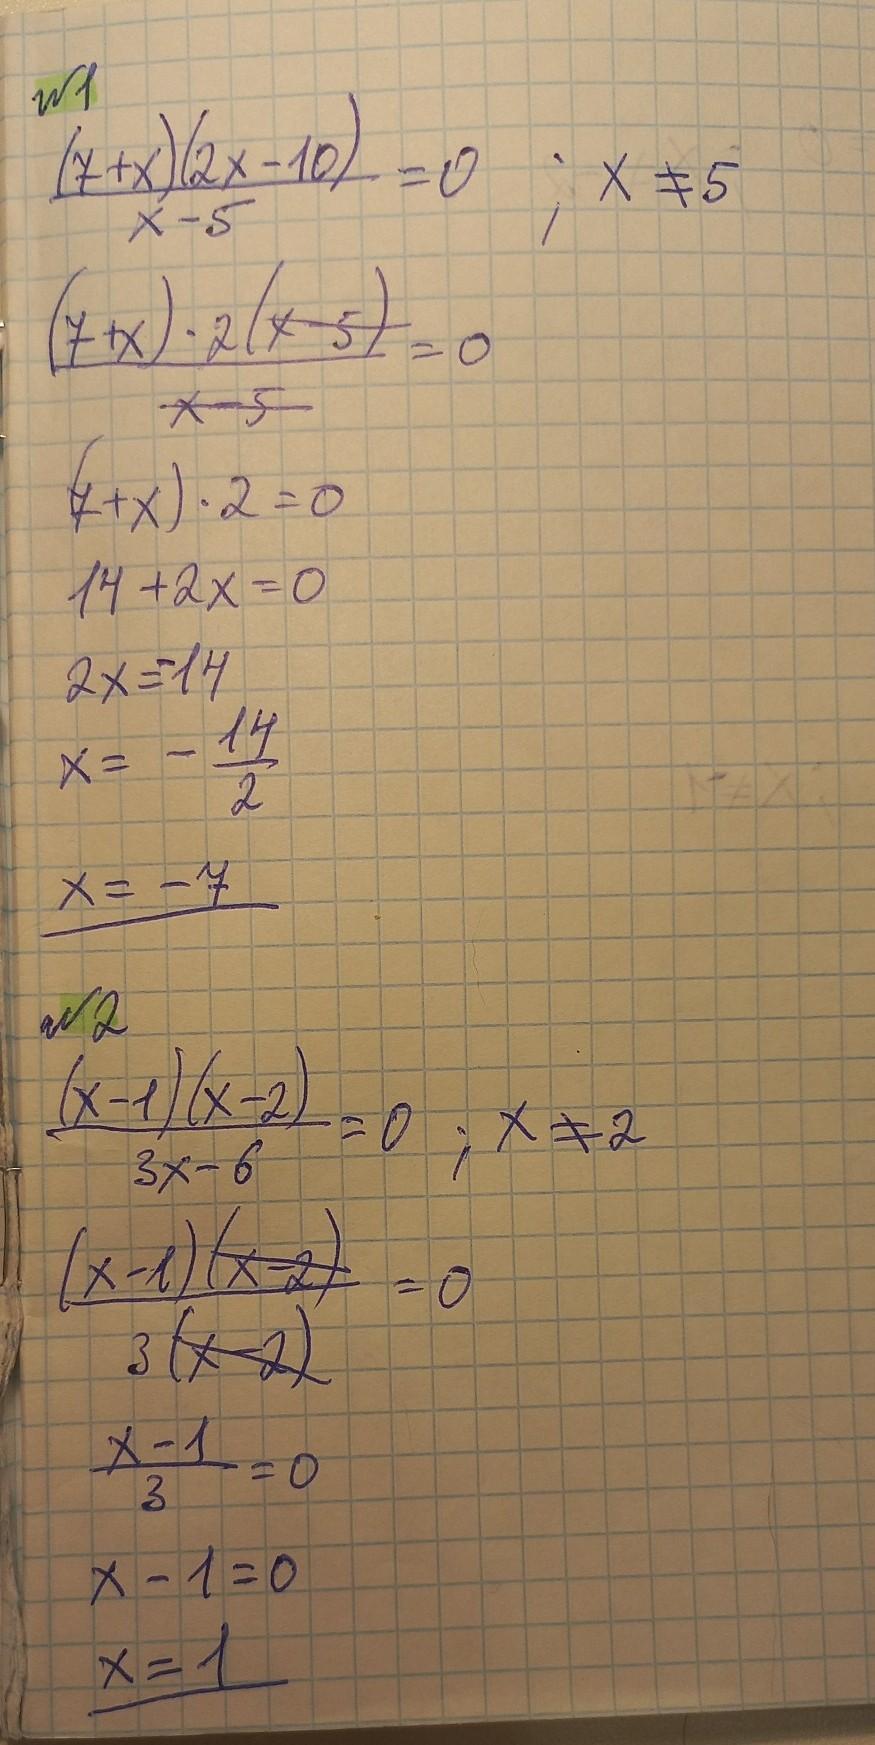 №1
(7+x)(2x-10)/x-5 = 0 ; x ≠ 5
(7+x)·2(x-5)/x-5 = 0
(7+x)·2=0
14+2x=0
2x=-14
x= -14/2
x= -7
№2
(x-1)(x-2)/3x-6 = 0 ; x ≠ 2
(x-1)(x-2)/3(x-2) = 0
x-1/3 = 0
x-1=0
x=1